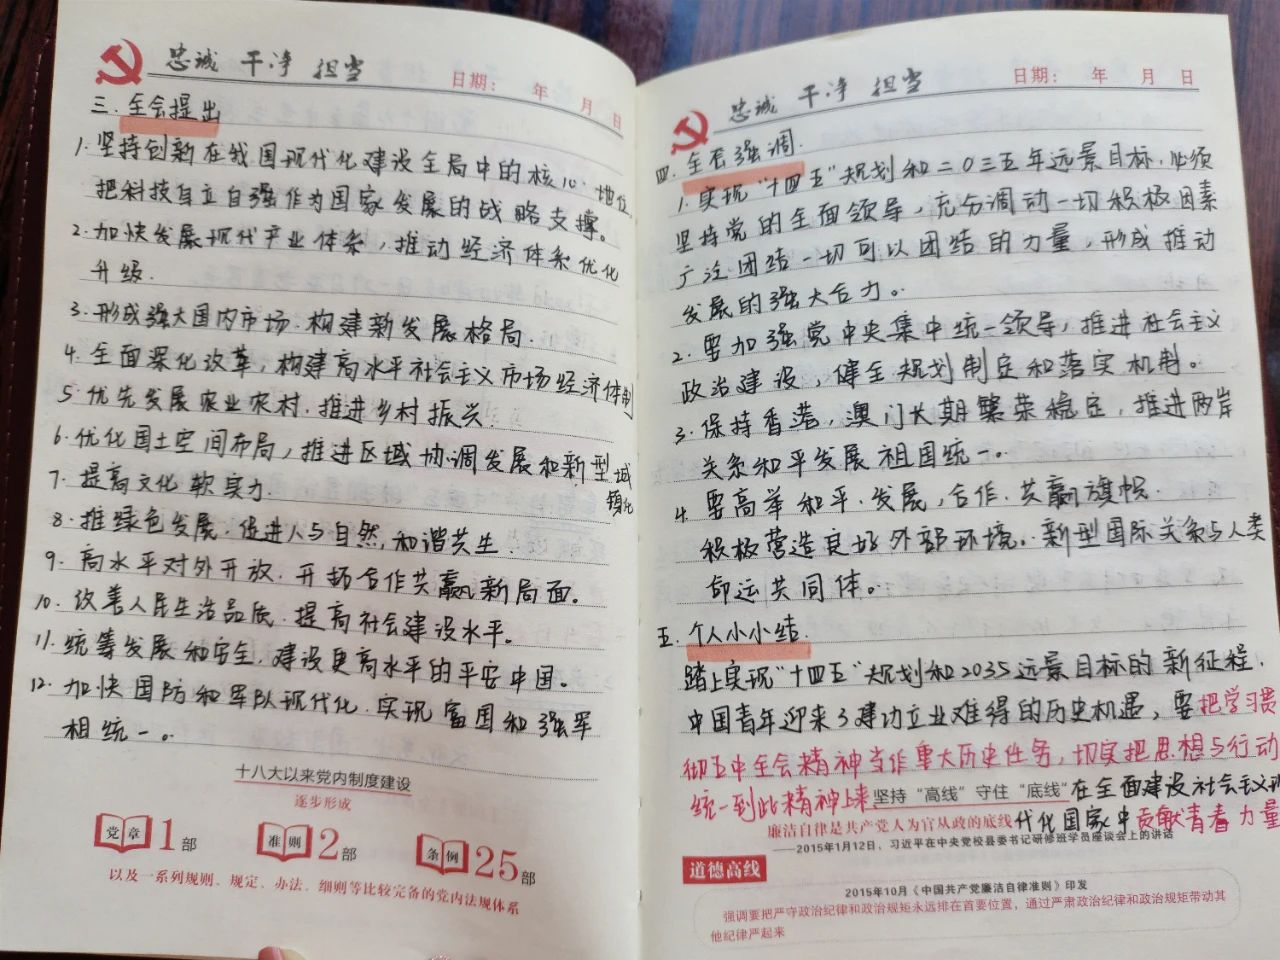 忠诚 干净 担当
日期: 年 月 日
三. 全会提出
1. 坚持创新在我国现代化建设全局中的核心地位.
把科技自立自强作为国家发展的战略支撑。
2. 加快发展现代产业体系, 推动经济体系优化
升级.
3. 形成强大国内市场. 构建新发展格局.
4. 全面深化改革, 构建高水平社会主义市场经济体制
5. 优先发展农业农村, 推进乡村振兴.
6. 优化国土空间布局, 推进区域协调发展和新型城
镇化
7. 提高文化软实力.
8. 推绿色发展, 促进人与自然, 和谐共生.
9. 高水平对外开放. 开拓合作共赢新局面。
10. 改善人民生活品质. 提高社会建设水平。
11. 统筹发展和安全, 建设更高水平的平安中国。
12. 加快国防和军队现代化. 实现富国和强军
相统一。
十八大以来党内制度建设
逐步形成
党章 1部 准则 2部 条例 25部
以及一系列规则、规定、办法、细则等比较完备的党内法规体系
忠诚 干净 担当
日期: 年 月 日
四. 全会强调.
1. 实现"十四五"规划和二〇三五年远景目标, 必须
坚持党的全面领导, 充分调动一切积极因素
广泛团结一切可以团结的力量, 形成推动
发展的强大合力。
2. 要加强党中央集中统一领导, 推进社会主义
政治建设, 健全规划制定和落实机制。
3. 保持香港, 澳门长期繁荣稳定, 推进两岸
关系和平发展祖国统一。
4. 要高举和平. 发展, 合作. 共赢旗帜.
积极营造良好外部环境. 新型国际关系与人类
命运共同体。
五. 个人小小结.
踏上实现"十四五"规划和2035远景目标的新征程,
中国青年迎来了建功立业难得的历史机遇, 要把学习贯
彻五中全会精神当作重大历史任务, 切实把思想与行动
统一到此精神上来 坚持“高线”守住“底线” 在全面建设社会主义现
廉洁自律是共产党人为官从政的底线 代化国家中贡献青春力量
——2015年1月12日,习近平在中央党校县委书记研修班学员座谈会上的讲话
道德高线
2015年10月《中国共产党廉洁自律准则》印发
强调要把严守政治纪律和政治规矩永远排在首要位置,通过严肃政治纪律和政治规矩带动其
他纪律严起来